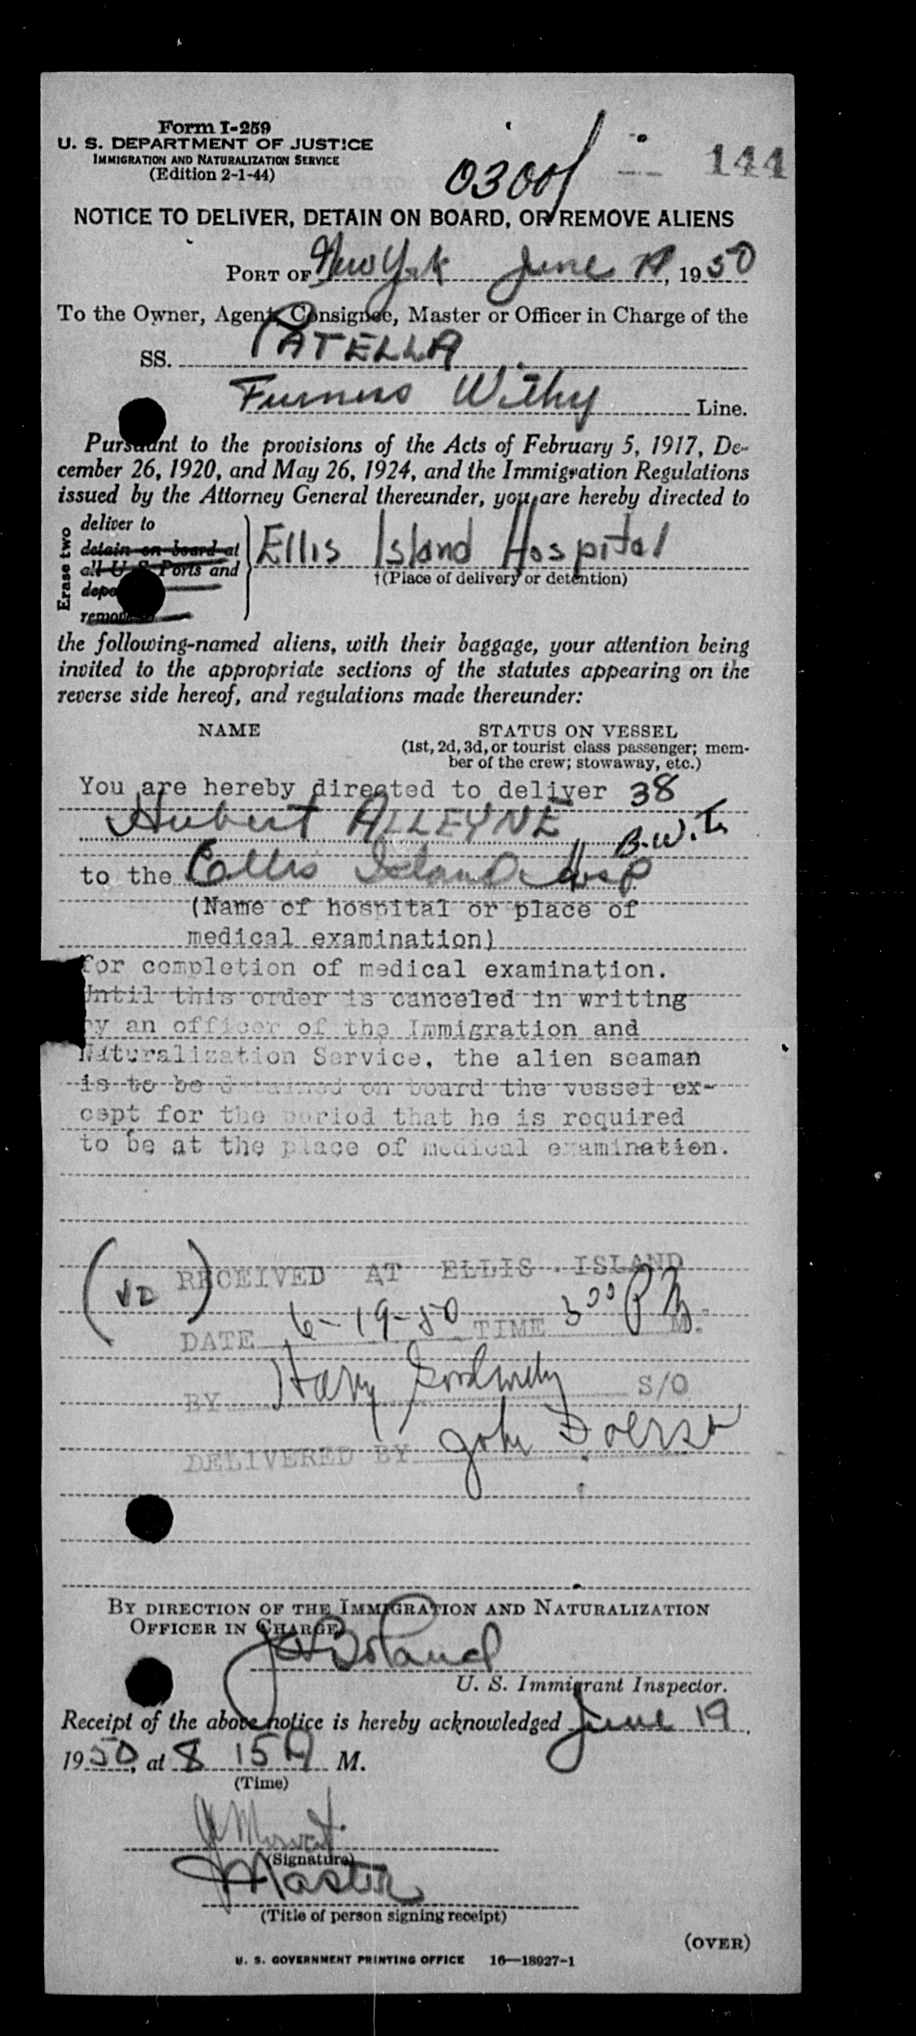 Form I-259
U. S. DEPARTMENT OF JUSTICE
IMMIGRATION AND NATURALIZATION SERVICE
(Edition 2-1-44)
0300/
144
NOTICE TO DELIVER, DETAIN ON BOARD, OR REMOVE ALIENS
PORT OF New York June 19, 1950
To the Owner, Agent, Consignee, Master or Officer in Charge of the
SS. PATELLA
Furness Withy Line.
Pursuant to the provisions of the Acts of February 5, 1917, De-
cember 26, 1920, and May 26, 1924, and the Immigration Regulations
issued by the Attorney General thereunder, you are hereby directed to
Erase two
deliver to
detain on board at
all U S Ports and
Ellis Island Hospital
†(Place of delivery or detention)
the following-named aliens, with their baggage, your attention being
invited to the appropriate sections of the statutes appearing on the
reverse side hereof, and regulations made thereunder:
NAME STATUS ON VESSEL
(1st, 2d, 3d, or tourist class passenger; mem-
ber of the crew; stowaway, etc.)
You are hereby directed to deliver 38
Hubert ALLEYNE B.W.I.
to the Ellis Island Hosp
(Name of hospital or place of
medical examination)
for completion of medical examination.
Until this order is canceled in writing
by an officer of the Immigration and
Naturalization Service, the alien seaman
is to be detained on board the vessel ex-
cept for the period that he is required
to be at the place of medical examination.
(VD) RECEIVED AT ELLIS ISLAND
DATE 6-19-50 TIME 3 00 P M.
BY Harry S/O
DELIVERED BY John
BY DIRECTION OF THE IMMIGRATION AND NATURALIZATION
OFFICER IN CHARGE
Boland
U. S. Immigrant Inspector.
Receipt of the above notice is hereby acknowledged June 19,
1950, at 8 15 A M.
(Time)
(Signature)
Master
(Title of person signing receipt)
(OVER)
U. S. GOVERNMENT PRINTING OFFICE 16—18027-1